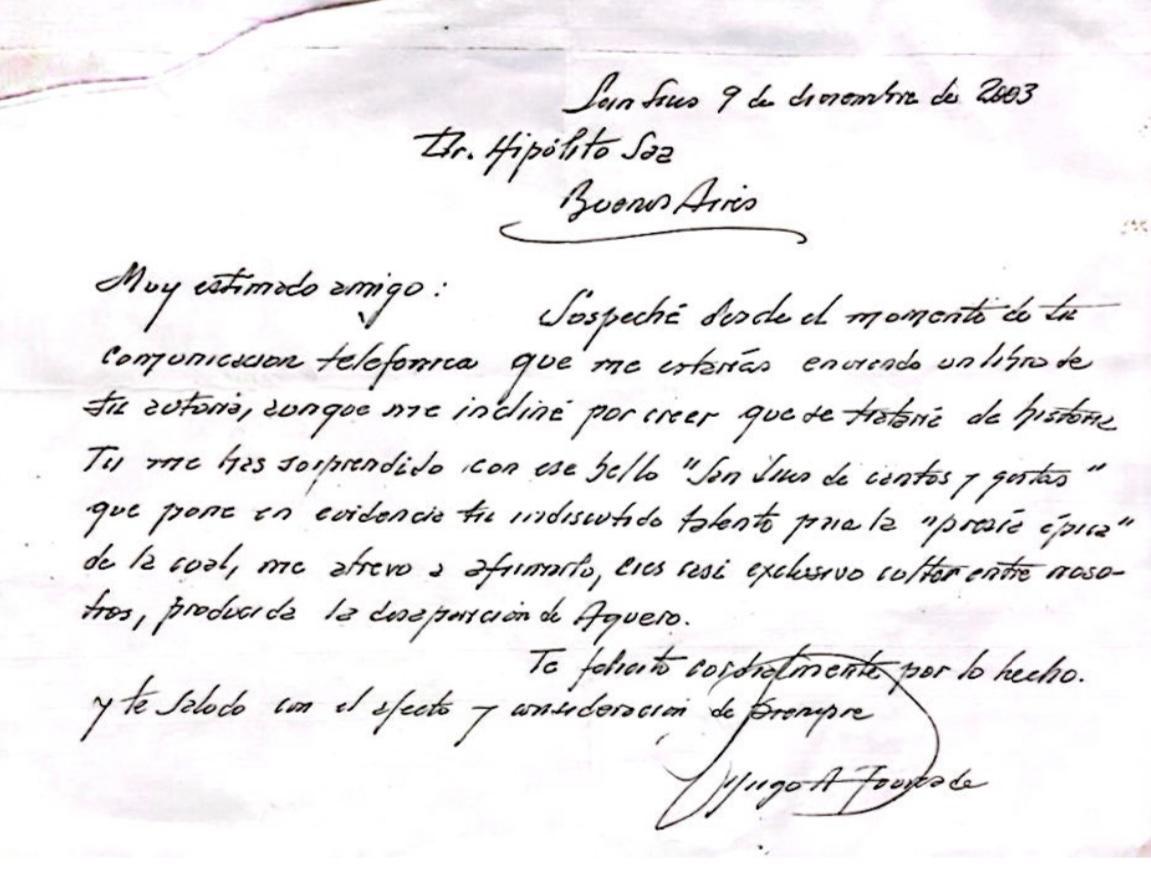 San Luis 9 de diciembre de 2003
Dr. Hipólito Saa
Buenos Aires
Muy estimado amigo:
Sospeché desde el momento de tu
comunicacion telefonica que me estarías enviando un libro de
tu autoria, aunque me incliné por creer que se trataria de historia
Tu me has sorprendido con ese bello "San Luis de cantos y gestas"
que pone en evidencia tu indiscutido talento para la "poesía épica"
de la cual, me atrevo a afirmarlo, eres casi exclusivo cultor entre noso-
tros, producida la desaparición de Aguero.
Te felicito cordialmente por lo hecho.
y te saludo con el afecto y consideracion de siempre
Hugo A